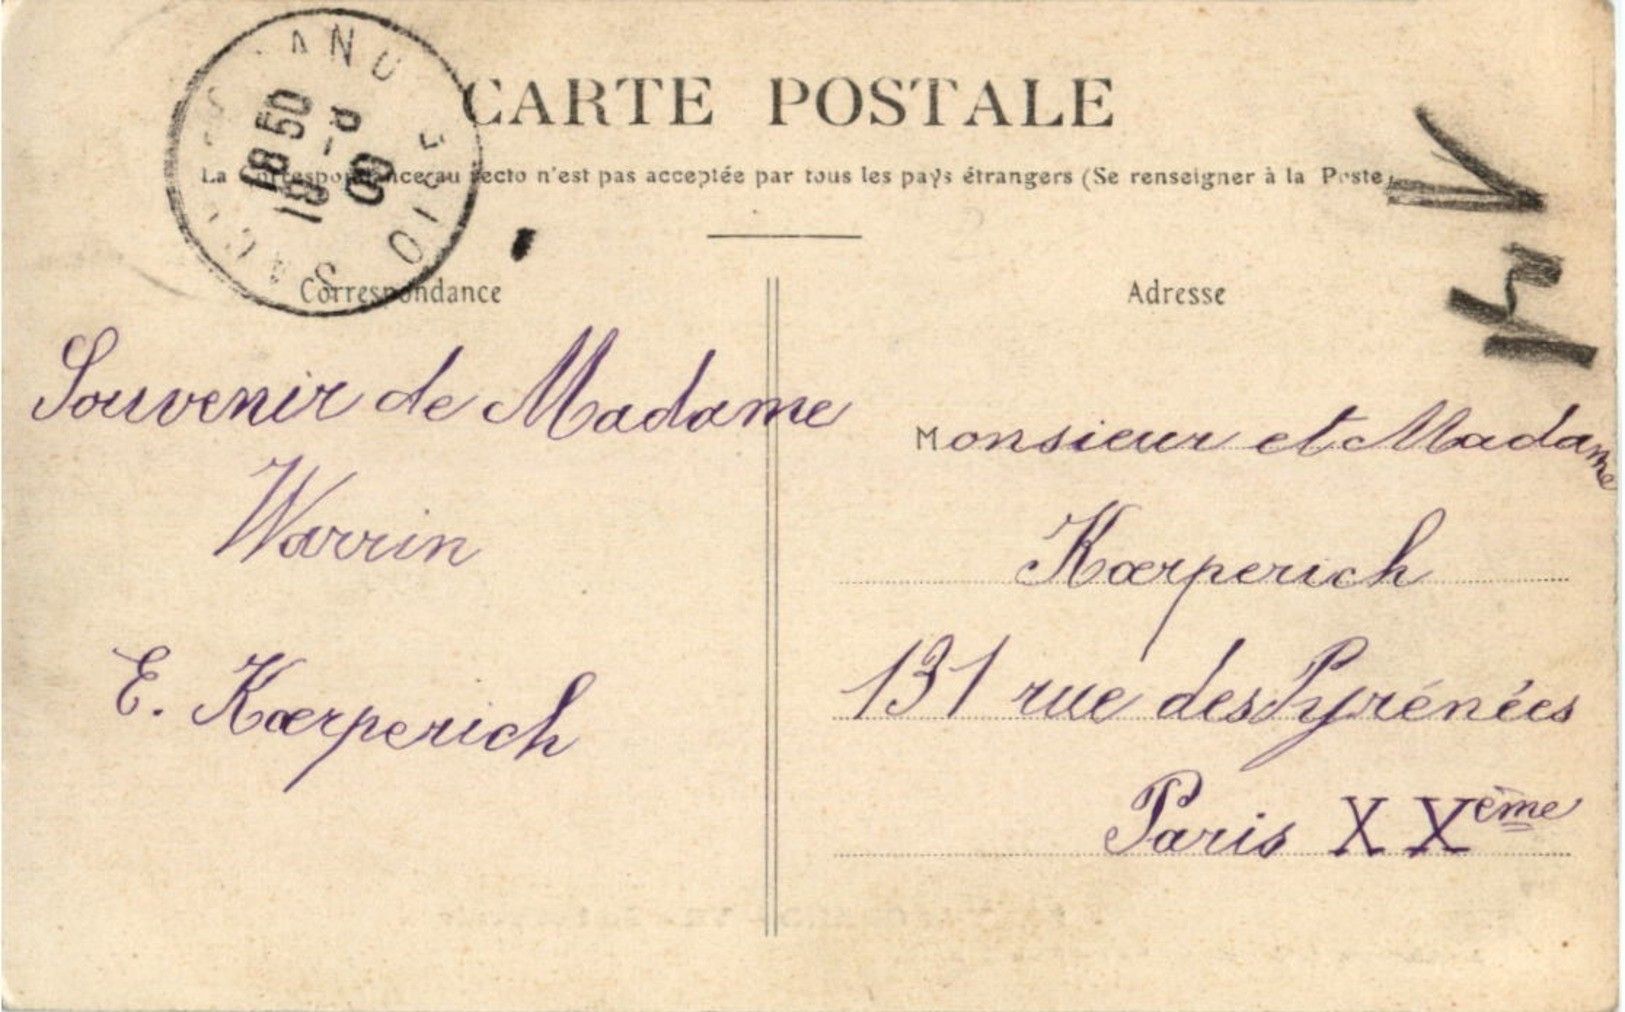 CARTE POSTALE
La Correspondance au recto n'est pas acceptée par tous les pays étrangers (Se renseigner à la Poste)
Correspondance
Souvenir de Madame
Warrin
E. Kœrperich
Adresse
Monsieur et Madame
Kœrperich
131 rue des Pyrénées
Paris XXème
18 50
18 - 8
09